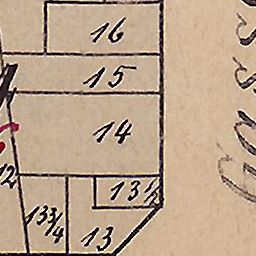 16
15
14
12
13½
13¾
13
Gass